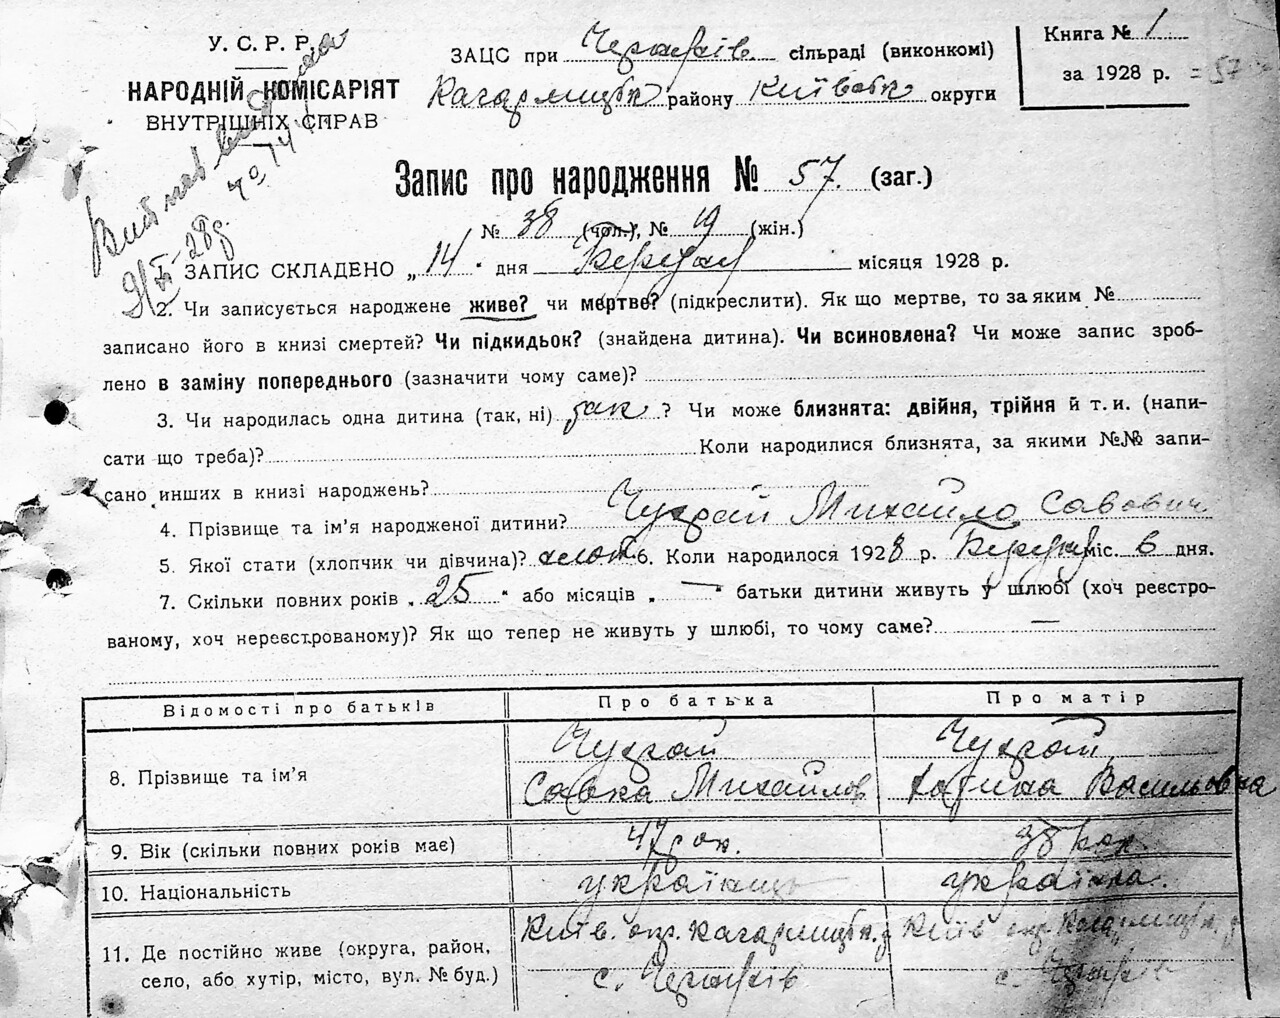 У. С. Р. Р.
НАРОДНІЙ КОМІСАРІЯТ
ВНУТРІШНІХ СПРАВ
ЗАЦС при Черняхів. сільраді (виконкомі)
Кагарлицьк району Київськ округи
Книга № 1
за 1928 р. = 57
Запис про народження № 57. (заг.)
№ 38 (чол.), № 19 (жін.)
ЗАПИС СКЛАДЕНО „ 14 " дня Березня місяця 1928 р.
2. Чи записується народжене живе? чи мертве? (підкреслити). Як що мертве, то за яким №
записано його в книзі смертей? Чи підкидьок? (знайдена дитина). Чи всиновлена? Чи може запис зроб-
лено в заміну попереднього (зазначити чому саме)?
3. Чи народилась одна дитина (так, ні) так ? Чи може близнята: двійня, трійня й т. и. (напи-
сати що треба)? Коли народилися близнята, за якими №№ запи-
сано инших в книзі народжень?
4. Прізвище та ім'я народженої дитини? Чухрай Михайло Савович
5. Якої стати (хлопчик чи дівчина)? хлоп 6. Коли народилося 1928 р. Березня міс. 6 дня.
7. Скільки повних років „ 25 " або місяців „ — " батьки дитини живуть у шлюбі (хоч реєстро-
ваному, хоч нереєстрованому)? Як що тепер не живуть у шлюбі, то чому саме? —
Відомості про батьків Про батька Про матір
8. Прізвище та ім'я Чухрай Чухрай
Савка Михайлов Василівна
9. Вік (скільки повних років має) 47 рок. 38 рок.
10. Національність українець українка.
11. Де постійно живе (округа, район, Київ. окр. Кагарлицьк. р Київ окр. Кагарлицьк. р
село, або хутір, місто, вул. № буд.) с. Черняхів с. Черняхів